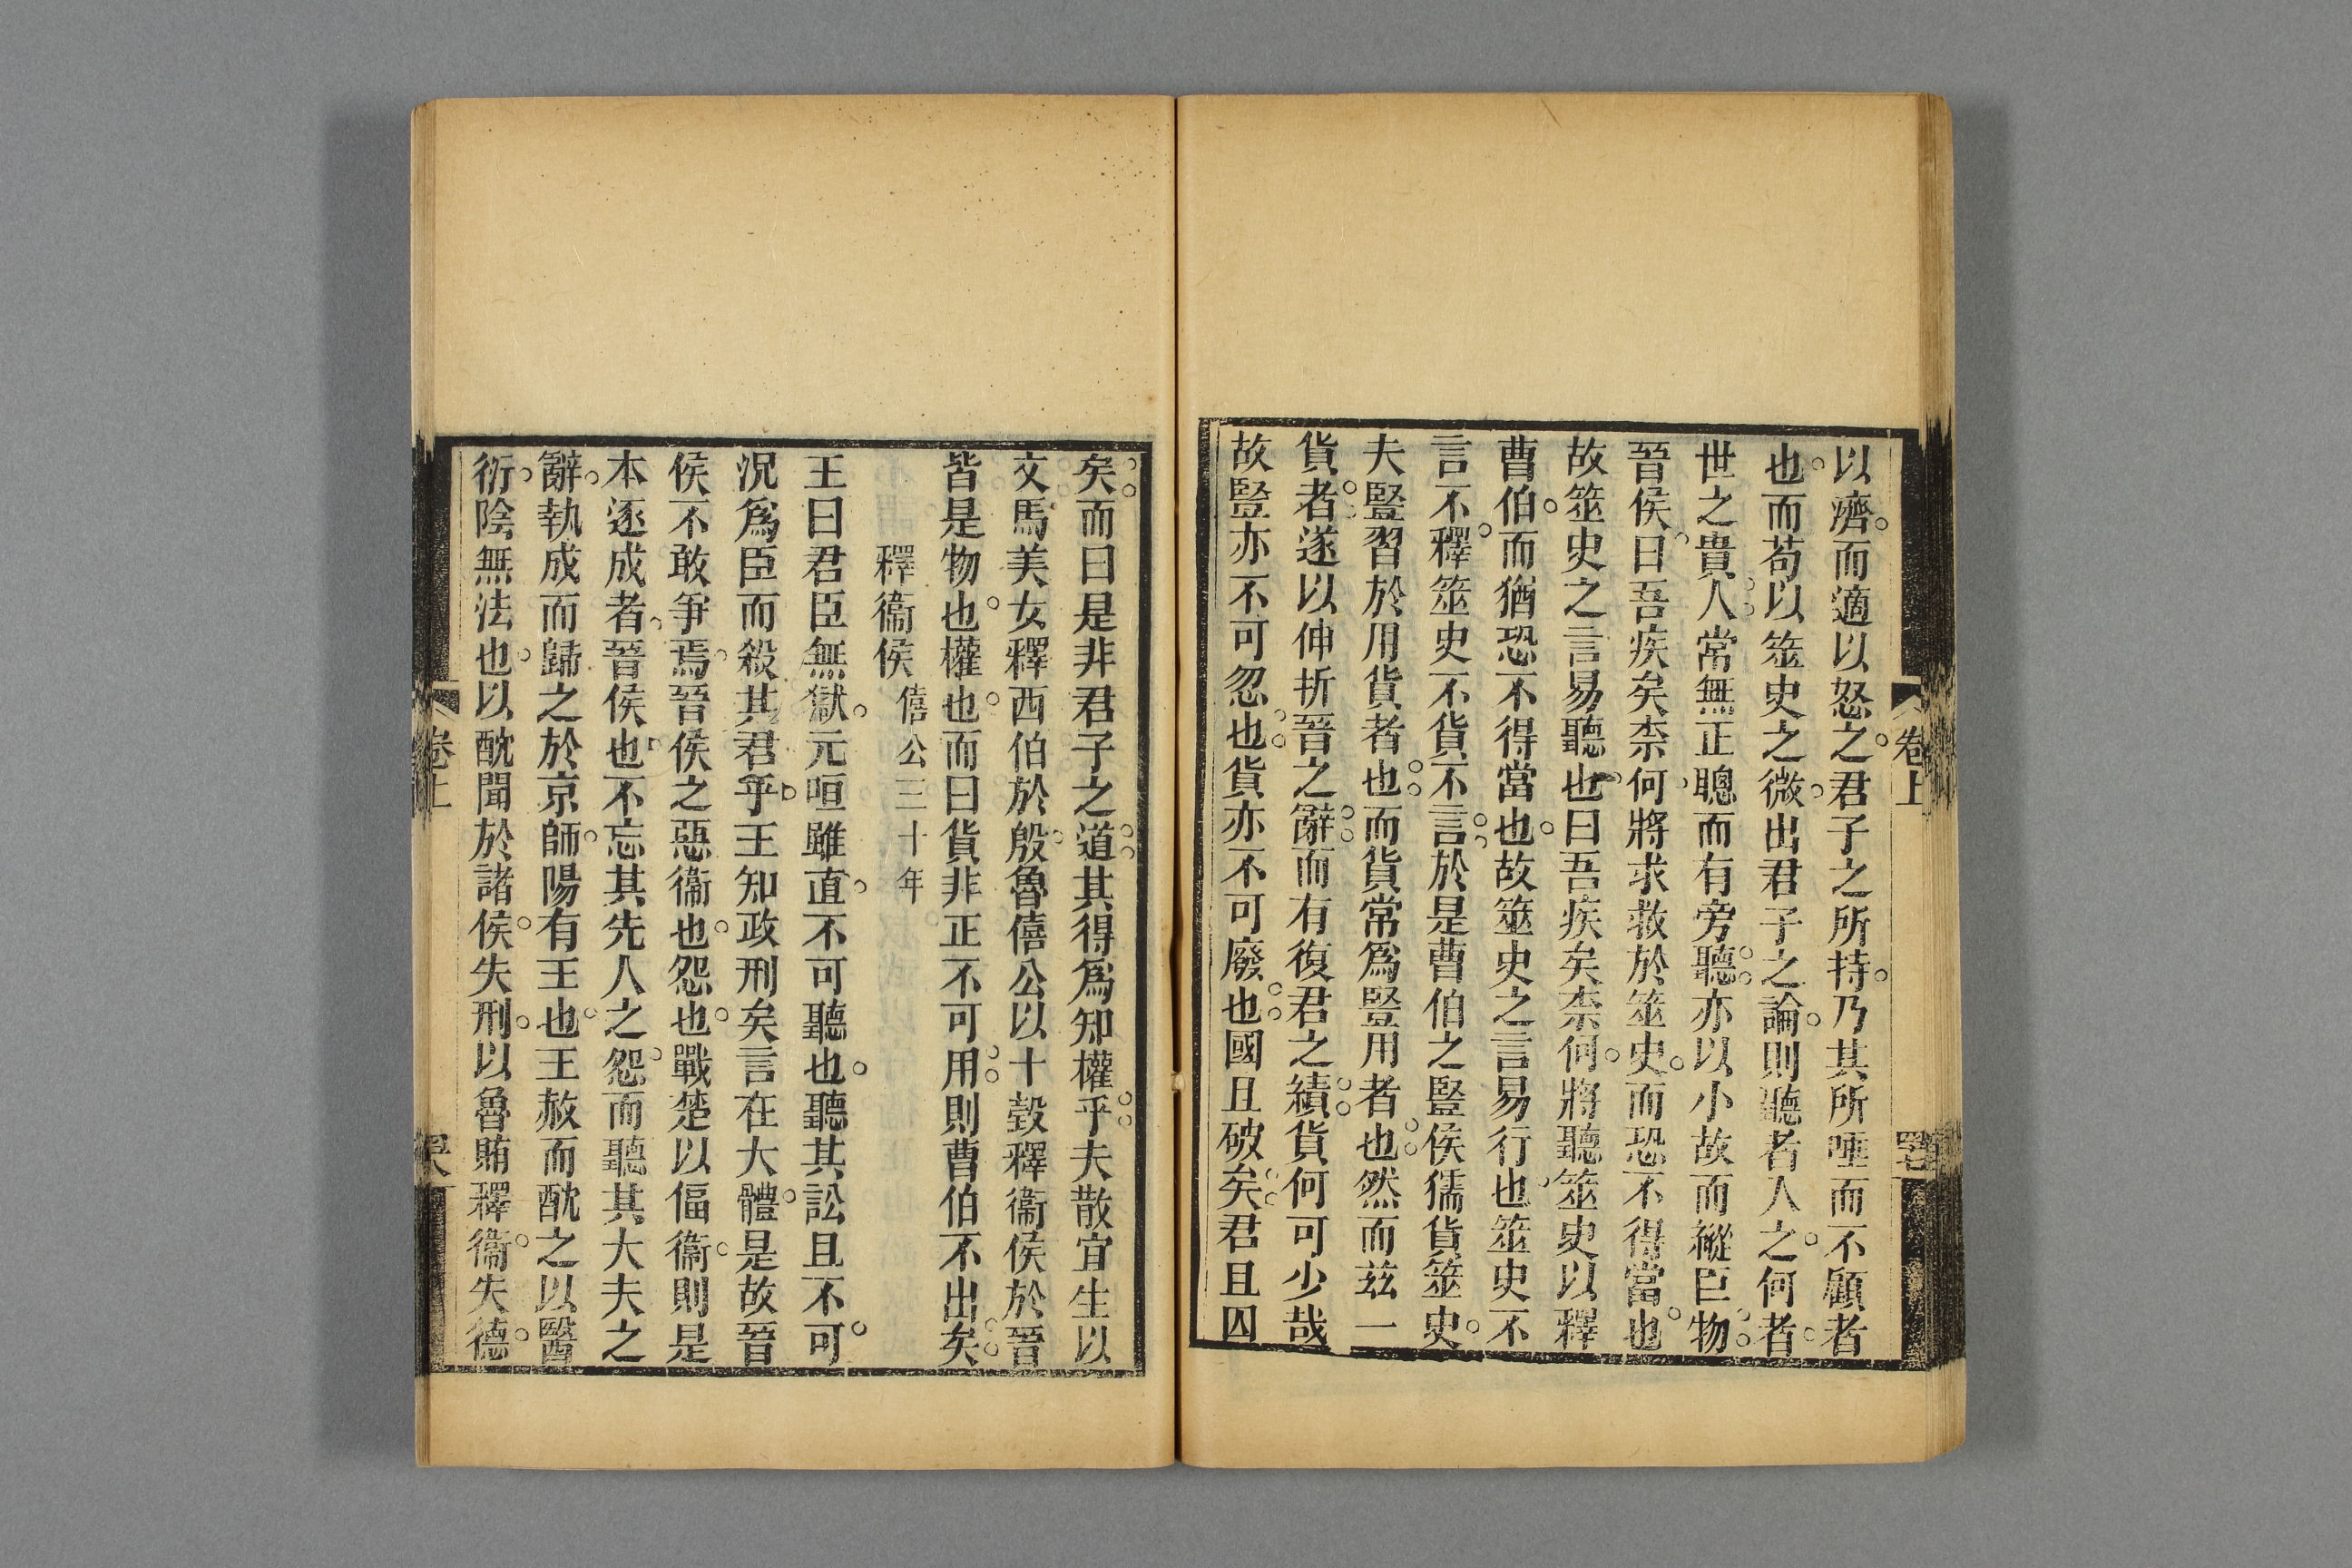 以濟而適以怒之君子之所持乃其所唾而不顧者
也而苟以筮史之微出君子之論則聽者人之何者
世之貴人常無正聰而有旁聽亦以小故而縱巨物
晉侯曰吾疾矣柰何將求救於筮史而恐不得當也
故筮史之言易聽也曰吾疾矣柰何將聽筮史以釋
曹伯而猶恐不得當也故筮史之言易行也筮史不
言不釋筮史不貨不言於是曹伯之豎侯獳貨筮史
夫豎習於用貨者也而貨常爲豎用者也然而茲一
貨者遂以伸折晉之辭而有復君之績貨何可少哉
故豎亦不可忽也貨亦不可廢也國且破矣君且囚
矣而曰是非君子之道其得爲知權乎夫散宜生以
文馬美女釋西伯於殷魯僖公以十瑴釋衞侯於晉
皆是物也權也而曰貨非正不可用則曹伯不出矣
釋衞侯 僖公三十年
王曰君臣無獄元咺雖直不可聽也聽其訟且不可
況爲臣而殺其君乎王知政刑矣言在大體是故晉
侯不敢爭焉晉侯之惡衞也怨也戰楚以偪衞則是
本逐成者晉侯也不忘其先人之怨而聽其大夫之
辭執成而歸之於京師陽有王也王赦而酖之以醫
衍陰無法也以酖聞於諸侯失刑以魯賄釋衞失德
卷上
卷上